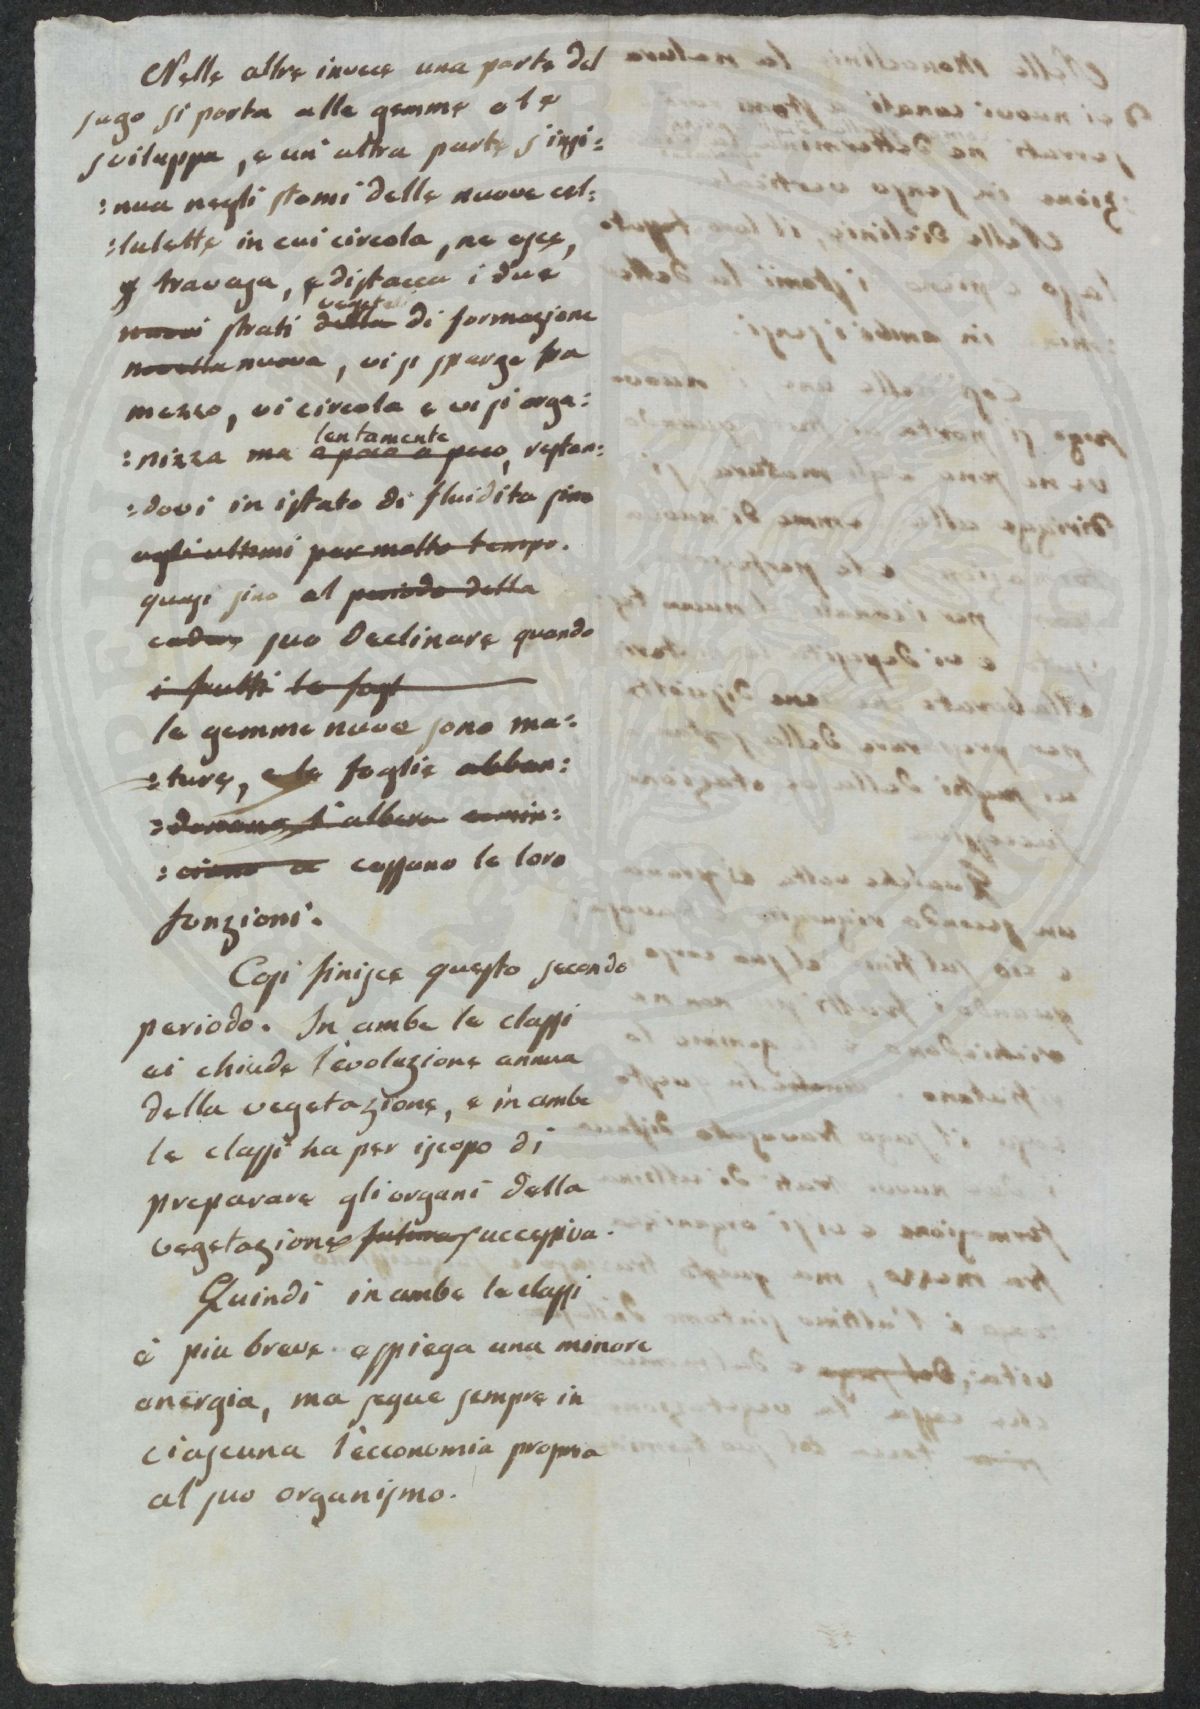 Nelle altre invece una parte del
sugo si porta alle gemme e le
sviluppa, e un' altra parte s'insi=
=nua negli stomi delle nuove cel=
=lulette in cui circola, ne esce,
e travasa, e distacca i due
nuovi strati della di formazione
novella nuova, vi si sparge fra
mezzo, vi circola e vi si orga=
lentamente
=nizza ma a poco a poco, restan=
=dovi in istato di fluidita sino
agli ultimi per molto tempo.
quasi sino al periodo della
suo declinare quando
i frutti le fogl
le gemme nuove sono ma=
=ture, e le foglie abban=
=donano l'albero comin=
=ciano a cessano le loro
funzioni.
Cosi finisce questo secondo
periodo. In ambe le classi
ei chiude l'evoluzione annua
della vegetazione, e in ambe
le classi ha per iscopo di
preparare gli organi della
vegetazione futura successiva.
Quindi in ambe le classi
è piu breve e spiega una minore
energia, ma segue sempre in
ciascuna l'economia propria
al suo organismo.